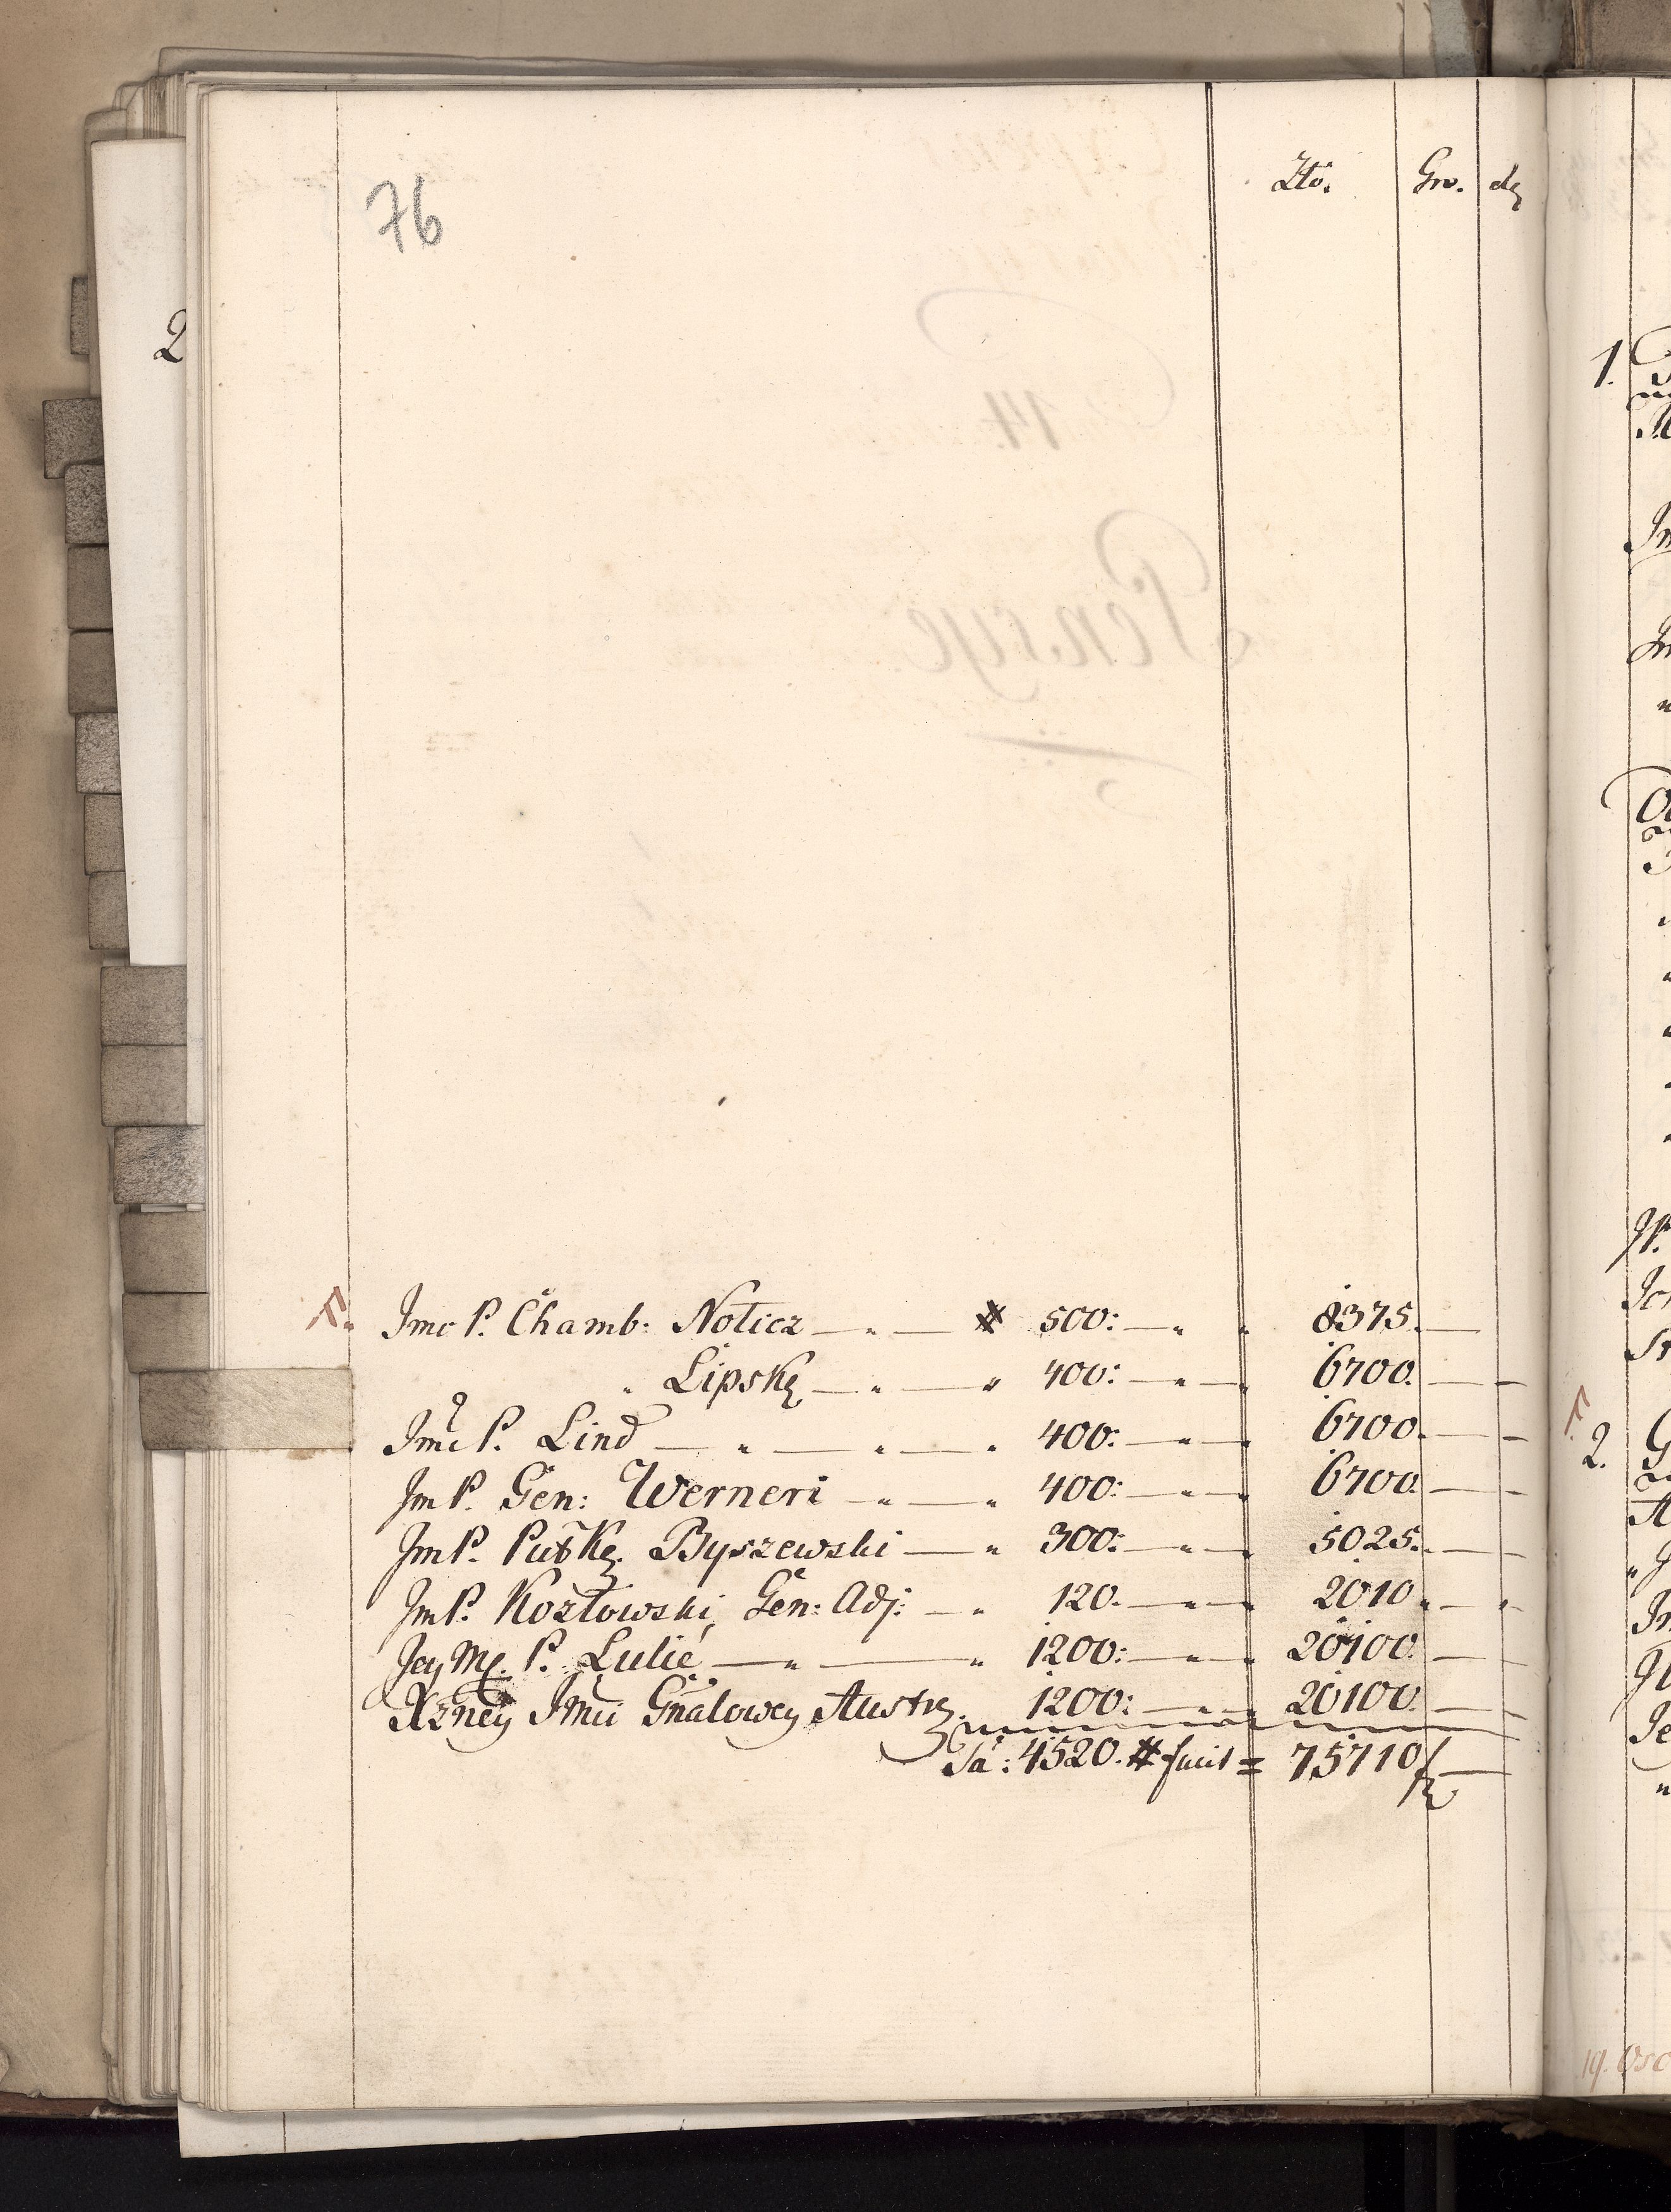 76
Złо. Gro. d.
2
Jmc P. Chamb: Noticz # 500: 8375.
" Lipsk 400: 6700.
Jmc P. Lind 400: 6700.
Jm P. Gen: Werneri 400: 6700.
Jm P. Putk. Byszewski 300: 5025.
Jm P. Kozłowski, Gen: Adj: 120. 2010.
Jey M. P. Lulié 1200: 20100.
Xzney Jmci Gnałowey Austr. 1200: 20100.
Sa: 4520. # facit = 75710
1.
2.